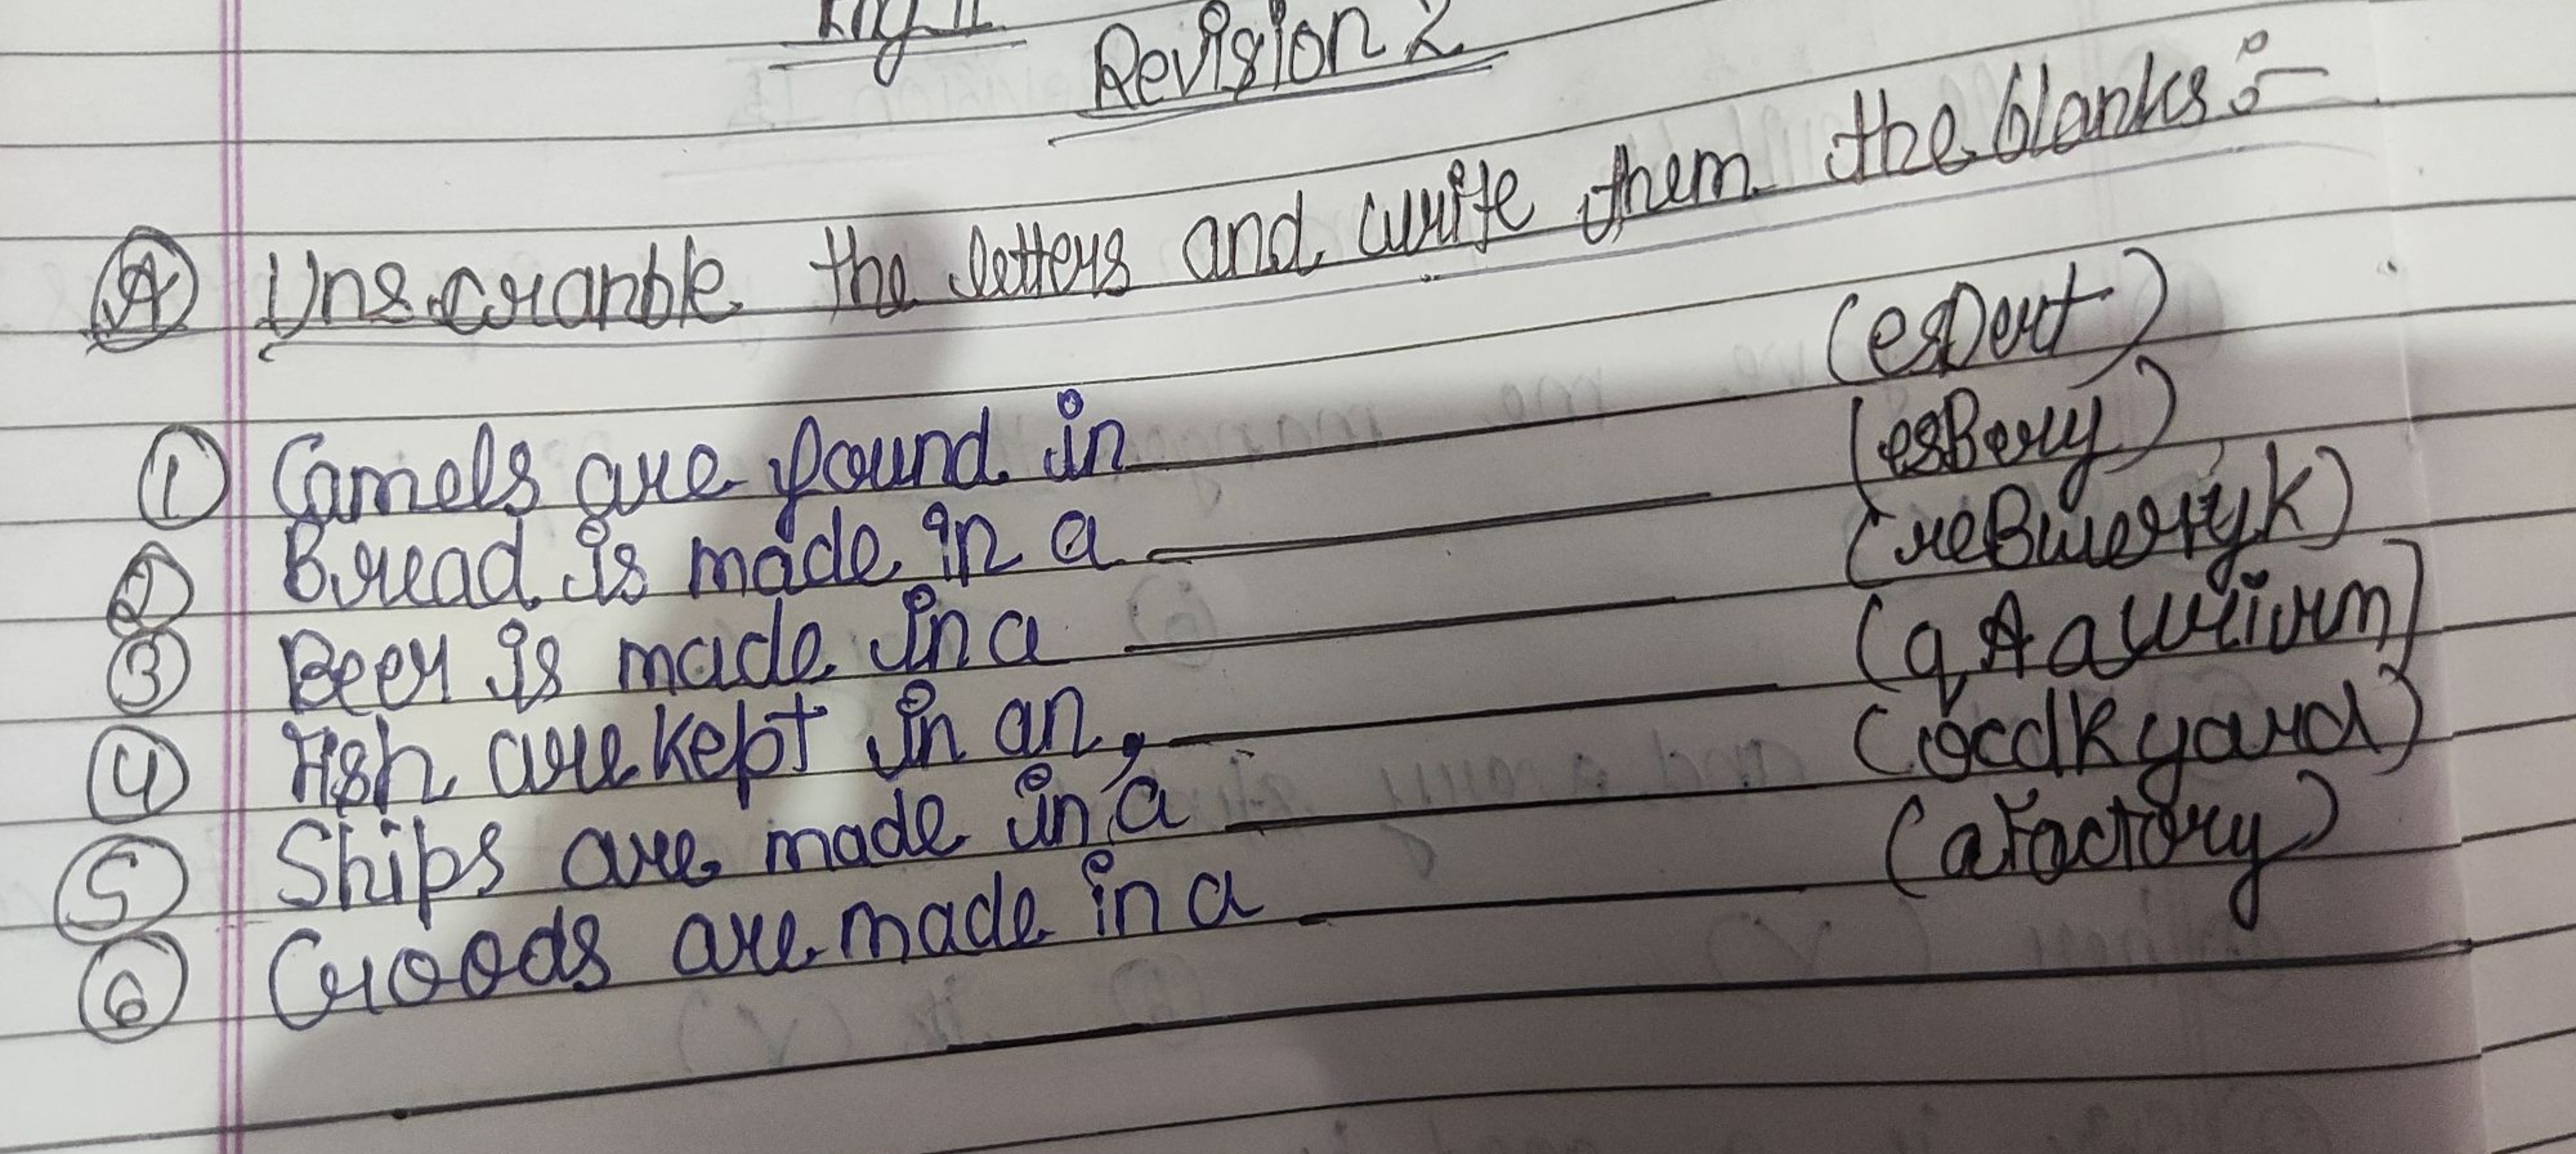 Eng II
Revision 2
(A) Unscranble the letters and write them the blanks:-
(1) Camels are found in ________ (esDert)
(2) Bread is made in a ________ (esBery)
(3) Beer is made in a ________ (reBwerryk)
(4) Fish are kept in an, ________ (qAauriurm)
(5) Ships are made in a ________ (ocdkyard)
(6) Goods are made in a ________ (aFactory)